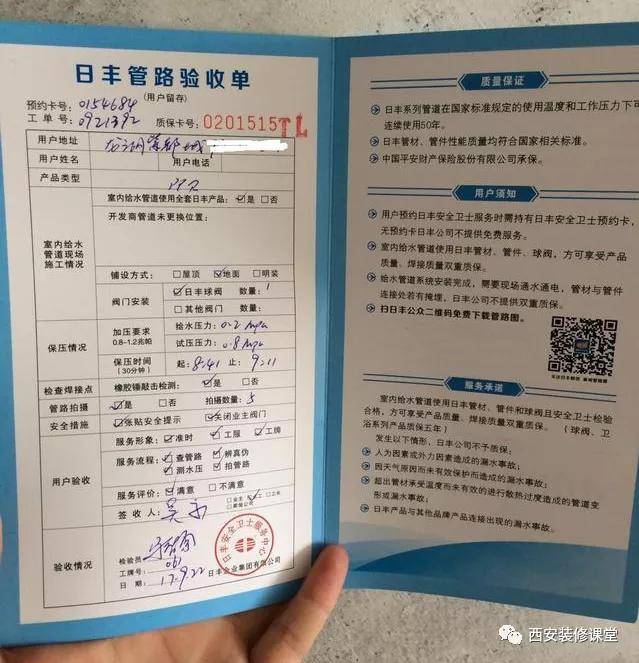 日丰管路验收单
(用户留存)
预约卡号: 0154684
工单号: 0921392 质保卡号: 0201515TL
用户地址
用户姓名 用户电话
产品类型
室内给水管道现场施工情况
室内给水管道使用全套日丰产品: ☑是 □否
开发商管道未更换位置:
铺设方式: □屋顶 ☑地面 □明装
阀门安装 ☑日丰球阀 数量: 1
□其他阀门 数量:
保压情况
加压要求 0.8-1.2兆帕 给水压力: 0.2 mpa
试压压力: 0.8 mpa
保压时间 (30分钟) 起: 8:41 止: 9:11
检查焊接点 橡胶锤敲击检测: ☑是 □否
管路拍摄 ☑是 □否 拍摄数量: 5
安全措施 ☑张贴安全提示 ☑关闭业主阀门
用户验收
服务形象: ☑准时 ☑工服 ☑工牌
服务流程: ☑查管路 ☑辨真伪
☑测水压 ☑拍管路
服务评价: ☑满意 □不满意
签收人:
验收情况
检验员
工牌号: 061
日期: 17.9.22 日丰企业集团有限公司
日丰安全卫士服务中心
质量保证
日丰系列管道在国家标准规定的使用温度和工作压力下可
连续使用50年。
日丰管材、管件性能质量均符合国家相关标准。
中国平安财产保险股份有限公司承保。
用户须知
用户预约日丰安全卫士服务时需持有日丰安全卫士预约卡,
无预约卡日丰公司不提供免费服务。
室内给水管道使用日丰管材、管件、球阀,方可享受产品
质量、焊接质量双重质保。
给水管道系统安装完成,需要现场通水通电,管材与管件
连接处若有掩埋,日丰公司不提供双重质保。
扫日丰公众二维码免费下载管路图。
服务承诺
室内给水管道使用日丰管材、管件和球阀且安全卫士检验
合格,方可享受产品质量、焊接质量双重质保。(球阀、卫
浴系列产品质保五年)
发生以下情形,日丰公司不予质保:
人为因素或外力因素造成的漏水事故;
因天气原因而未有效保护而造成的漏水事故;
超出管材承受温度而未有效的进行散热过度造成的管道变
形或漏水事故;
日丰产品与其他品牌产品连接出现的漏水事故。
西安装修课堂